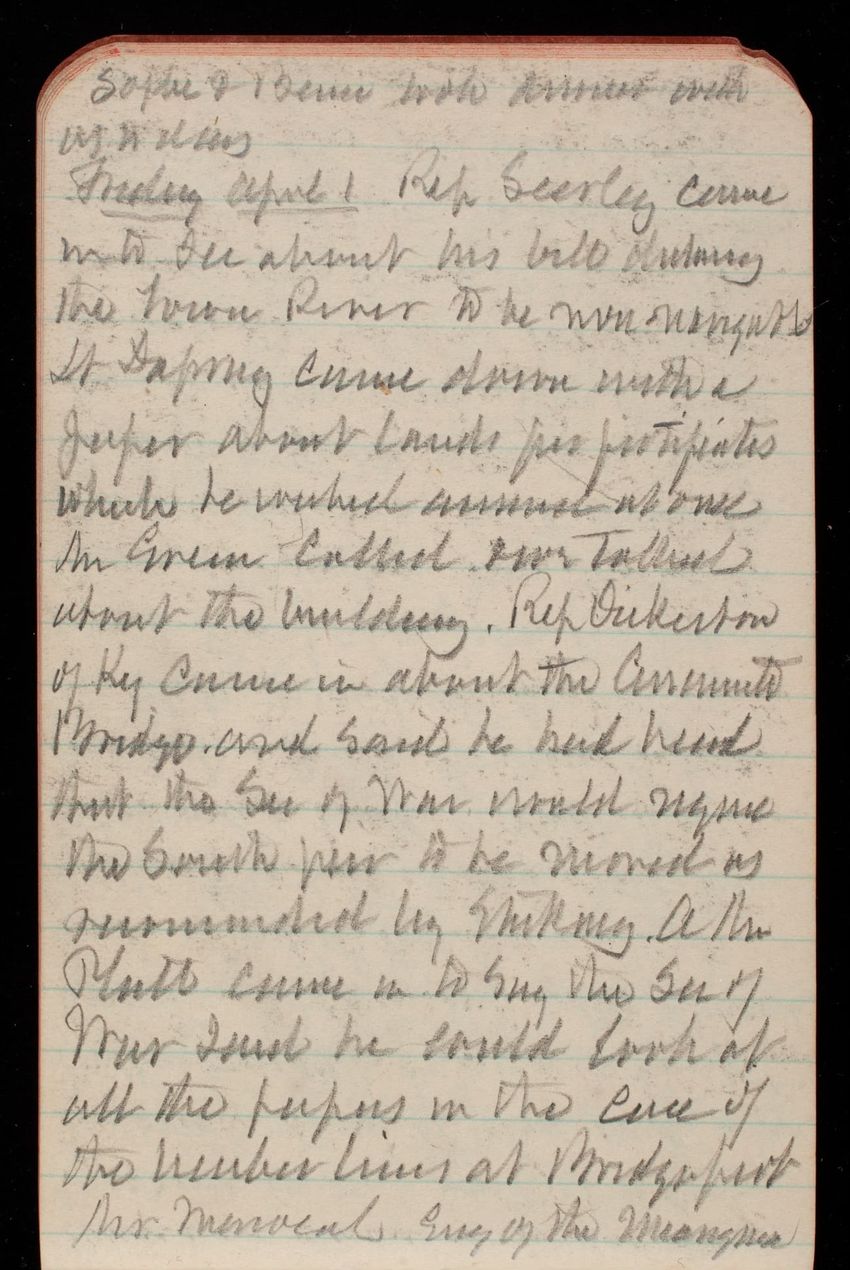 Sophie & Bessie took dinner with
us to day
Friday April 1 Rep Seerley came
in to see about his bill declaring
the Iowa River to be non-navigable
Lt came down with a
paper about lands for
which he wished answered at once
Mr Green called over Talked
about the building. Rep Dickerson
of Ky came in about the Cincinnati
Bridge. and said he had heard
that the Sec of War would require
the South pier to be moved as
recommended by Stickney. A Mr
Platt came in to say the Sec of
War said he could look at
all the papers in the case of
the harbor lines at Bridgeport
Mr. Menocal Eng of the